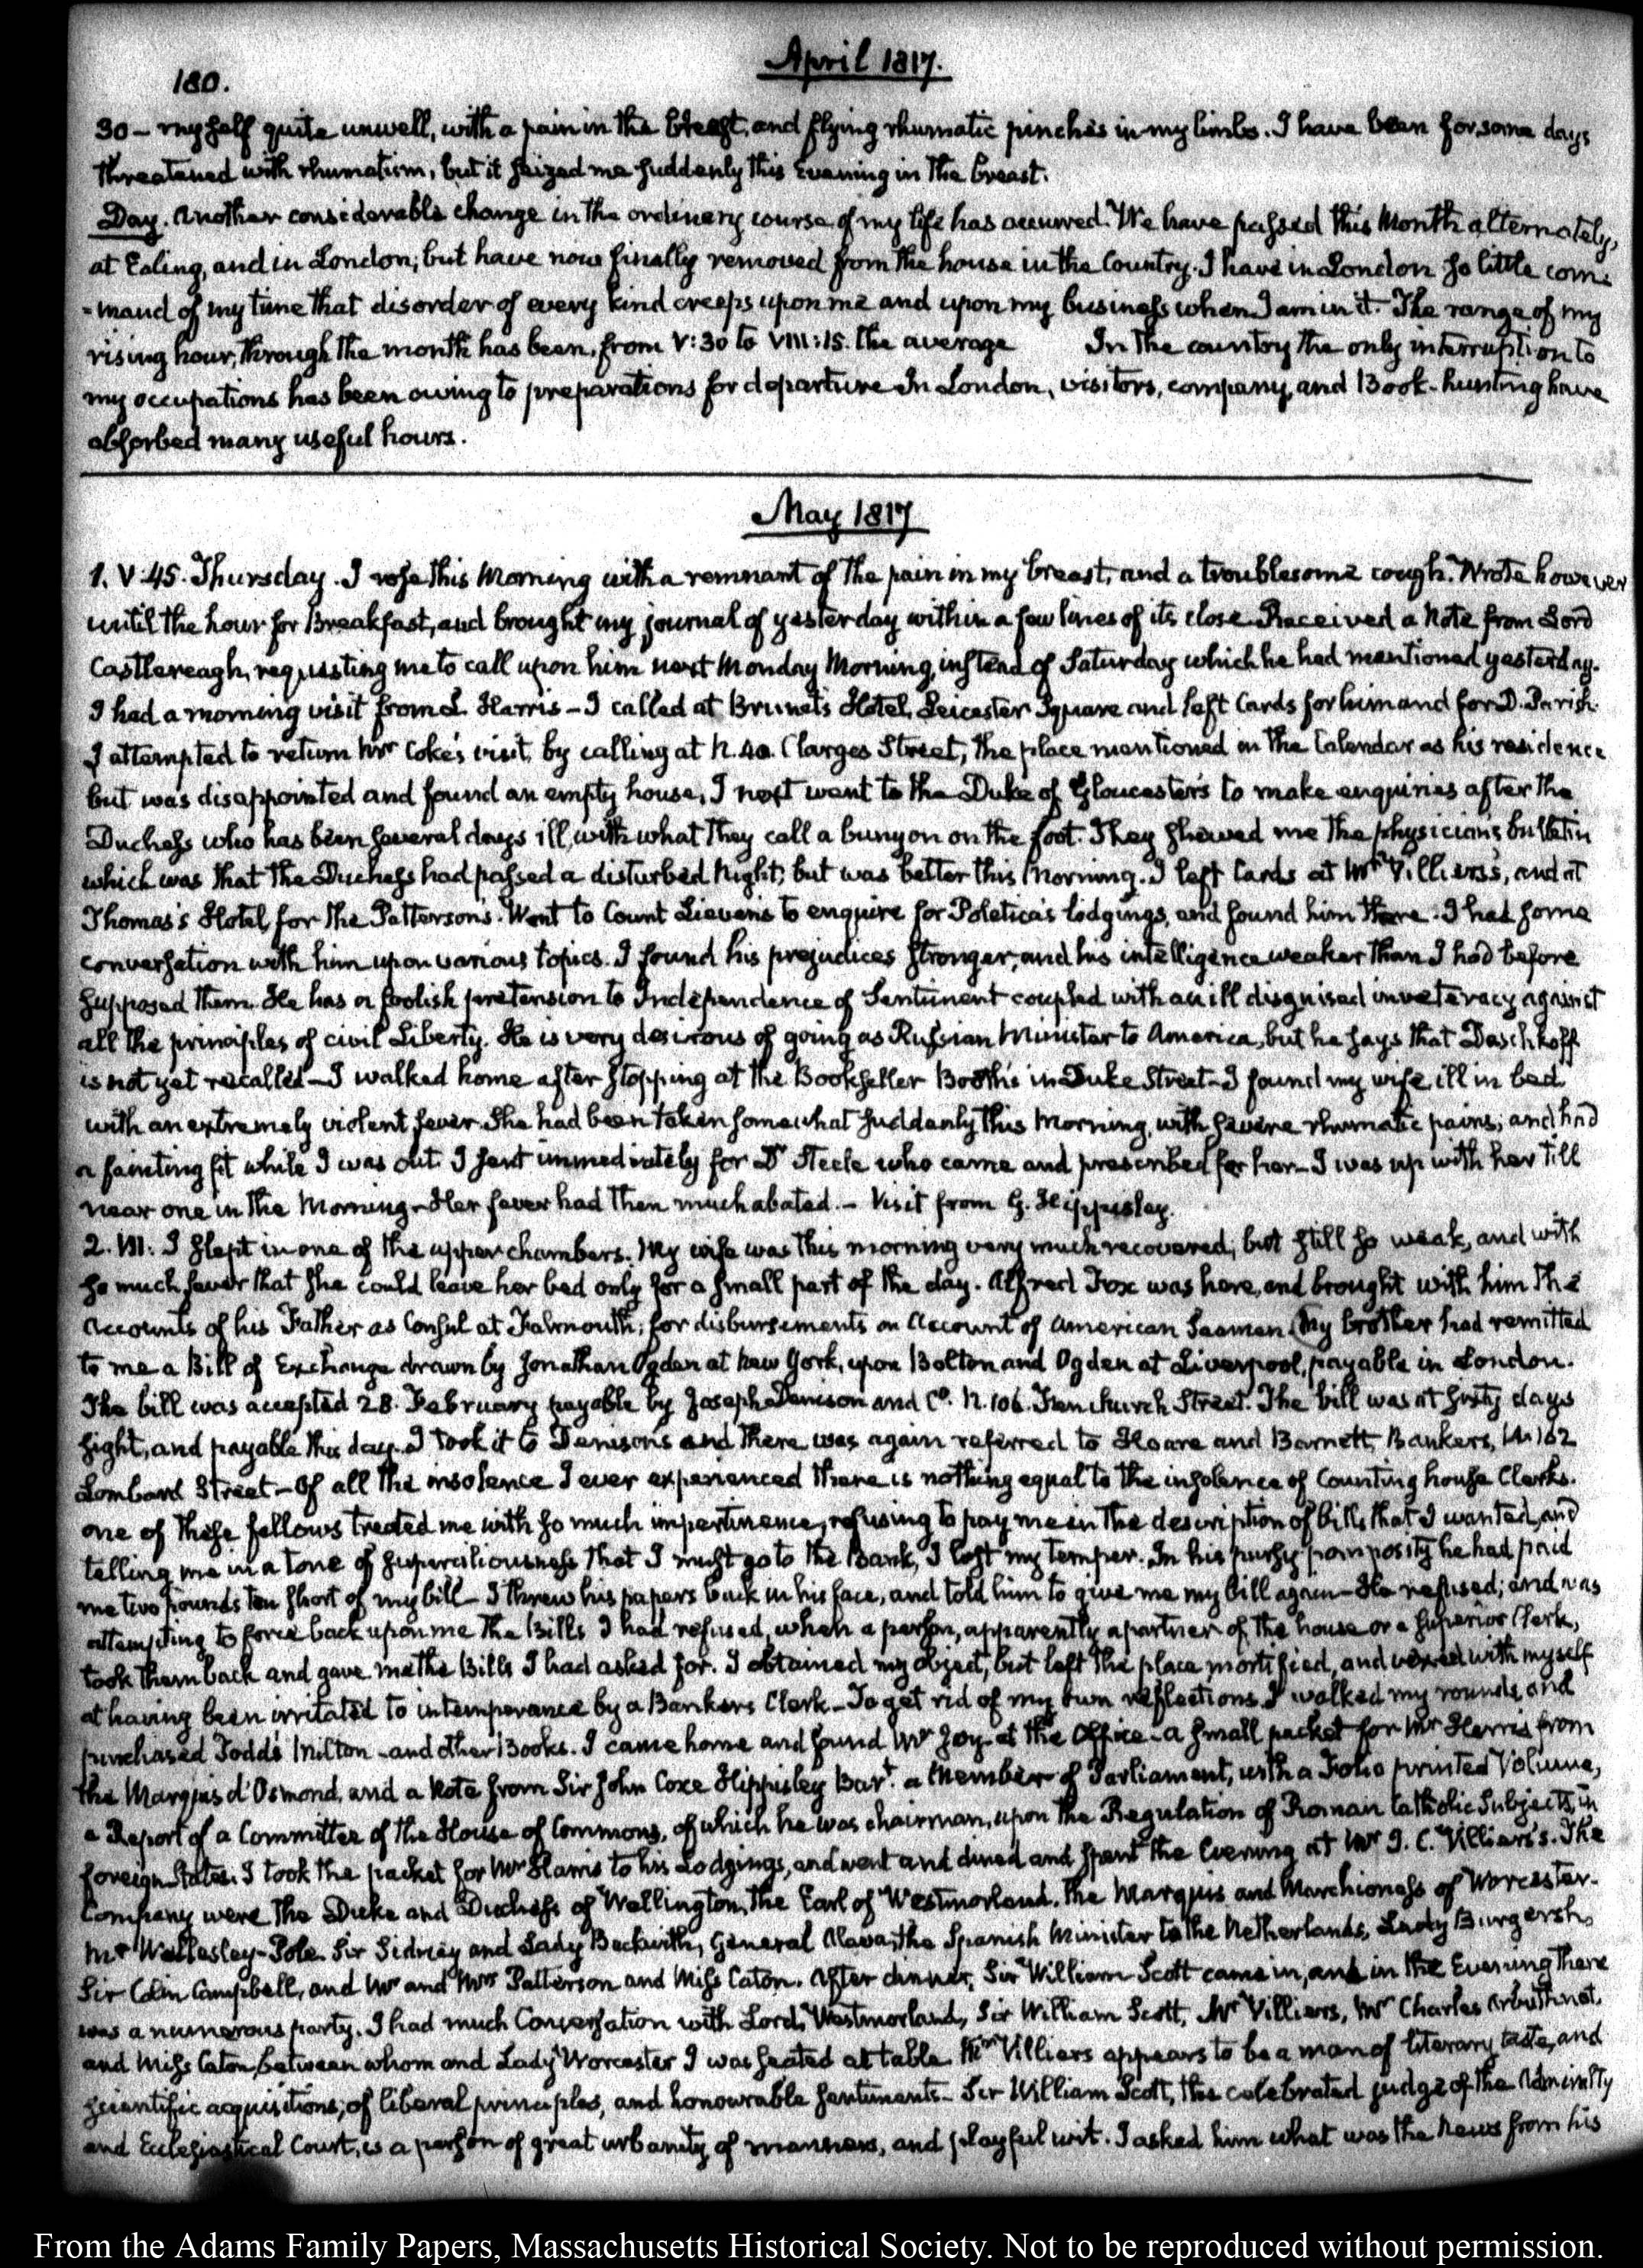 180.
April 1817.
30 — myself quite unwell, with a pain in the breast, and flying rhumatic pinches in my limbs. I have been for some days
threatened with rhumatism, but it seized me suddenly this Evening in the breast.
Day. Another considerable change in the ordinary course of my life has occurred. We have passed this Month alternately,
at Ealing, and in London; but have now finally removed from the house in the Country. I have in London so little com-
-mand of my time that disorder of every kind creeps upon me and upon my business when I am in it. The range of my
rising hour, through the month has been, from V:30 to VIII:15. the average In the country the only interruption to
my occupations has been owing to preparations for departure In London, visitors, company, and Book-hunting have
absorbed many useful hours.
May 1817
1. V:45. Thursday. I rose this Morning with a remnant of the pain in my breast, and a troublesome cough. Wrote however
until the hour for Breakfast, and brought my journal of yesterday within a few lines of its close. Received a Note from Lord
Castlereagh, requesting me to call upon him next Monday Morning, instead of Saturday which he had mentioned yesterday.
I had a morning visit from L. Harris — I called at Brunet's Hotel, Leicester Square and left Cards for him and for D. Parish.
I attempted to return Mr Coke's visit, by calling at N. 40. Clarges Street, the place mentioned in the Calendar as his residence
but was disappointed and found an empty house, I next went to the Duke of Gloucester's to make enquiries after the
Duchess who has been several days ill, with what they call a bunyon on the foot. They shewed me the physician's bulletin
which was that the Duchess had passed a disturbed Night, but was better this Morning. I left Cards at Mr Villiers's, and at
Thomas's Hotel, for the Pattersons. Went to Count Lieven's to enquire for Poletica's lodgings, and found him there. I had some
conversation with him upon various topics. I found his prejudices stronger, and his intelligence weaker than I had before
supposed them. He has a foolish pretension to Independence of Sentiment coupled with an ill disguised inveteracy against
all the principles of civil Liberty. He is very desirous of going as Russian Minister to America, but he says that Daschkoff
is not yet recalled — I walked home after stopping at the Bookseller Booth's in Duke Street — I found my wife, ill in bed
with an extremely violent fever. She had been taken somewhat suddenly this Morning, with severe rhumatic pains; and had
a fainting fit while I was out. I sent immediately for Dr Steele who came and prescribed for her — I was up with her till
near one in the Morning — Her fever had then much abated. — Visit from G. Hippisley.
2. VII: I slept in one of the upper chambers. My wife was this morning very much recovered, but still so weak, and with
so much fever that she could leave her bed only for a small part of the day. Alfred Fox was here, and brought with him the
Accounts of his Father as Consul at Falmouth, for disbursements on Account of American Seamen. My brother had remitted
to me a Bill of Exchange drawn by Jonathan Ogden at New York, upon Bolton and Ogden at Liverpool, payable in London.
The bill was accepted 28. February payable by Joseph Denison and Co. N. 106. Fenchurch Street. The bill was at sixty days
sight, and payable this day. I took it to Denison's and there was again referred to Hoare and Barnett, Bankers, N. 62
Lombard Street — Of all the insolence I ever experienced there is nothing equal to the insolence of Counting house Clerks.
one of these fellows treated me with so much impertinence, refusing to pay me in the description of bills that I wanted, and
telling me in a tone of superciliousness that I must go to the Bank, I lost my temper. In his pursy pomposity he had paid
me two pounds ten short of my bill — I threw his papers back in his face, and told him to give me my bill again — He refused; and was
attempting to force back upon me the Bills I had refused, when a person, apparently a partner of the house or a Superior Clerk,
took them back and gave me the Bills I had asked for. I obtained my object, but left the place mortified, and vexed with myself
at having been irritated to intemperance by a Bankers Clerk — To get rid of my own reflections I walked my rounds, and
purchased Todd's Milton — and other Books. I came home and found Mr Joy at the Office — a small packet for Mr Harris from
the Marquis d'Osmond, and a Note from Sir John Coxe Hippisley Bart. a Member of Parliament, with a Folio printed Volume,
a Report of a Committee of the House of Commons, of which he was chairman, upon the Regulation of Roman Catholic Subjects, in
foreign States. I took the packet for Mr Harris to his Lodgings, and went and dined and spent the Evening at Mr J. C. Villiers's. The
Company were the Duke and Duchess of Wellington, the Earl of Westmorland. the Marquis and Marchioness of Worcester.
Mr Wellesley-Pole. Sir Sidney and Lady Beckwith, General Alava, the Spanish Minister to the Netherlands, Lady Burgersh,
Sir Colin Campbell, and Mr and Mrs Patterson and Miss Caton. After dinner, Sir William Scott came in, and in the Evening there
was a numerous party. I had much Conversation with Lord Westmorland, Sir William Scott, Mr Villiers, Mr Charles Arbuthnot,
and Miss Caton, between whom and Lady Worcester I was seated at table. Mr Villiers appears to be a man of literary taste, and
scientific acquisitions; of liberal principles, and honourable sentiments — Sir William Scott, the celebrated judge of the Admiralty
and Ecclesiastical Court, is a person of great urbanity of manners, and playful wit. I asked him what was the News from his
From the Adams Family Papers, Massachusetts Historical Society. Not to be reproduced without permission.